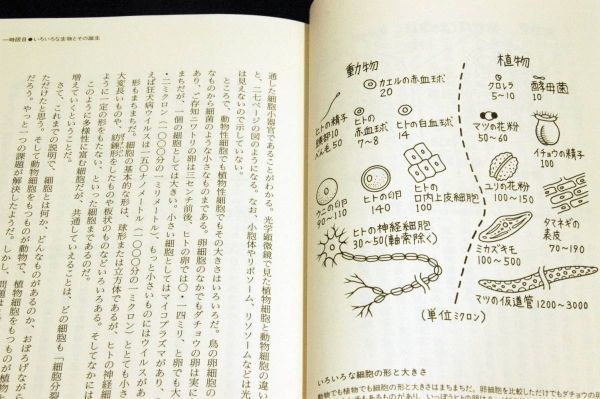 一時限目●いろいろな生物とその誕生
通した細胞小器官であることがわかる。光学顕微鏡で見た植物細胞と動物細胞の違い
と、二七ページの図のようになる。なお、小胞体やリボソーム、リソソームなどは光
は見えないので示していない。
ところで、動物性細胞でも植物性細胞でもその大きさはいろいろだ。鳥の卵細胞の
なものから細菌のような小さなものまである。卵細胞のなかでもダチョウの卵は実に
あり、ご存知ニワトリの卵は三センチ前後、ヒトの卵では〇・一四ミリ、と卵でも大
まちだが、一個の細胞としては大きい。小さい細胞としてはマイコプラズマが
・二ミクロン（一〇〇〇分の一ミリメートル）、もっと小さいものにはウイルスがあ
えば狂犬病ウイルスは一五〇ナノメートル（一〇〇〇分の一ミクロン）ととても小さ
形もまちまちだ。細胞の基本的な形は、球形または立方体であるが、ヒトの神経細
大変長いものや、紡錘形をしたものや板状のものなどいろいろある。そしてなかには
ように一定の形をもたない、といった細胞まであるのだ。
このように多様性に富む細胞だが、共通していえることは、どの細胞も「細胞分裂
増えていくということだ。
さて、これまでの説明で、細胞とは何か、どんなものがあるのか、おぼろげながら
ただけたと思う。そして動物細胞をもつものが動物で、植物細胞をもつものが植物と
だろう。やっと一つの課題が解決したようだ。しかし、問題は
動物
カエルの赤血球
20
ヒトの精子
頭部10
べん毛50
ヒトの
赤血球
7〜8
ヒトの白血球
14
ウニの卵
90〜110
ヒトの卵
140
ヒトの
口内上皮細胞
100
ヒトの神経細胞
30〜50(軸索除く)
植物
クロレラ
5〜10
酵母菌
10
マツの花粉
50〜60
イチョウの精子
100
ユリの花粉
100〜150
タマネギの
表皮
70〜190
ミカズキモ
100〜500
マツの仮道管 1200〜3000
(単位ミクロン)
いろいろな細胞の形と大きさ
動物でも植物でも細胞の形と大きさはまちまちだ。卵細胞を比較しただけでもダチョウの卵